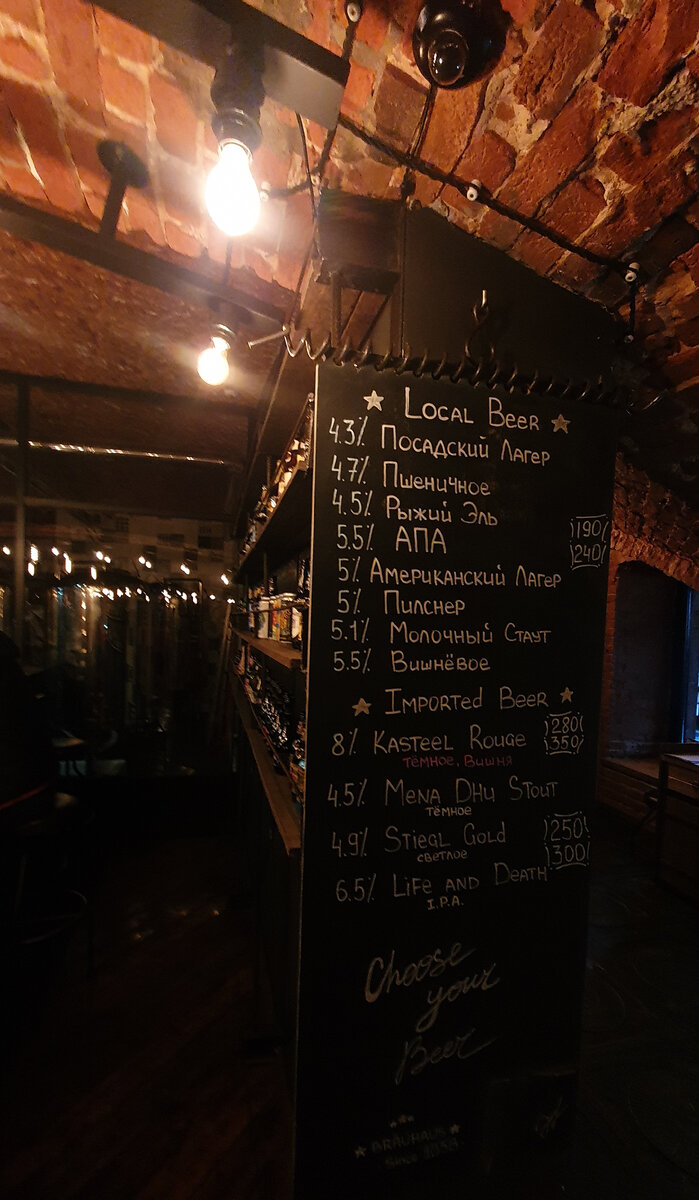 Local Beer
4.3% Посадский Лагер
4.7% Пшеничное
4.5% Рыжий Эль
190
5.5% АПА
240
5% Американский Лагер
5% Пилснер
5.1% Молочный Стаут
5.5% Вишнёвое
Imported Beer
280
8% Kasteel Rouge
350
тёмное, Вишня
4.5% Mena Dhu Stout
тёмное
4.9% Stiegl Gold
250
светлое
300
6.5% Life and Death
I.P.A.
Choose
your
Beer
BRAUHAUS
Since